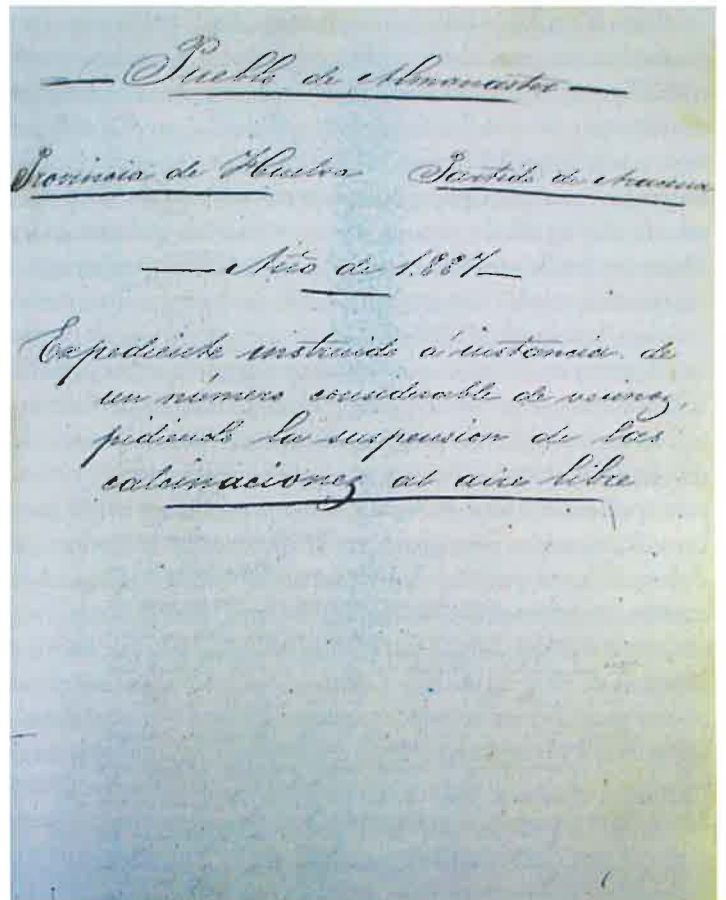 Pueblo de Almonaster
Provincia de Huelva Partido de Aracena
Año de 1.887
Expediente instruido á instancia de
un número considerable de vecinos,
pidiendo la suspension de las
calcinaciones al aire libre